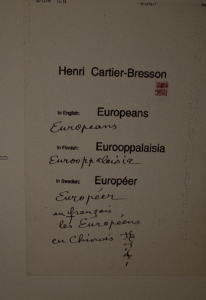 Henri Cartier-Bresson
In English: Europeans
Europeans
In Finnish: Eurooppalaisia
Eurooppalaisia
In Swedish: Européer
Européer
en français
les Européens
en Chinois